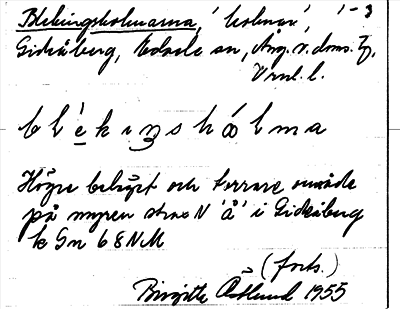 Blekingsholmarna, 'holmar', 1-3
Gideåberg, Edsele sn, Ång. v. doms. Tg.
Vrnl. l.
b l è k ı ŋ s h ó l m a
Högre beläget och torrare område
på myren strax N 'å' i Gideåberg
k Sn 6 8 NM
(forts.)
Birgitte Åslund 1955